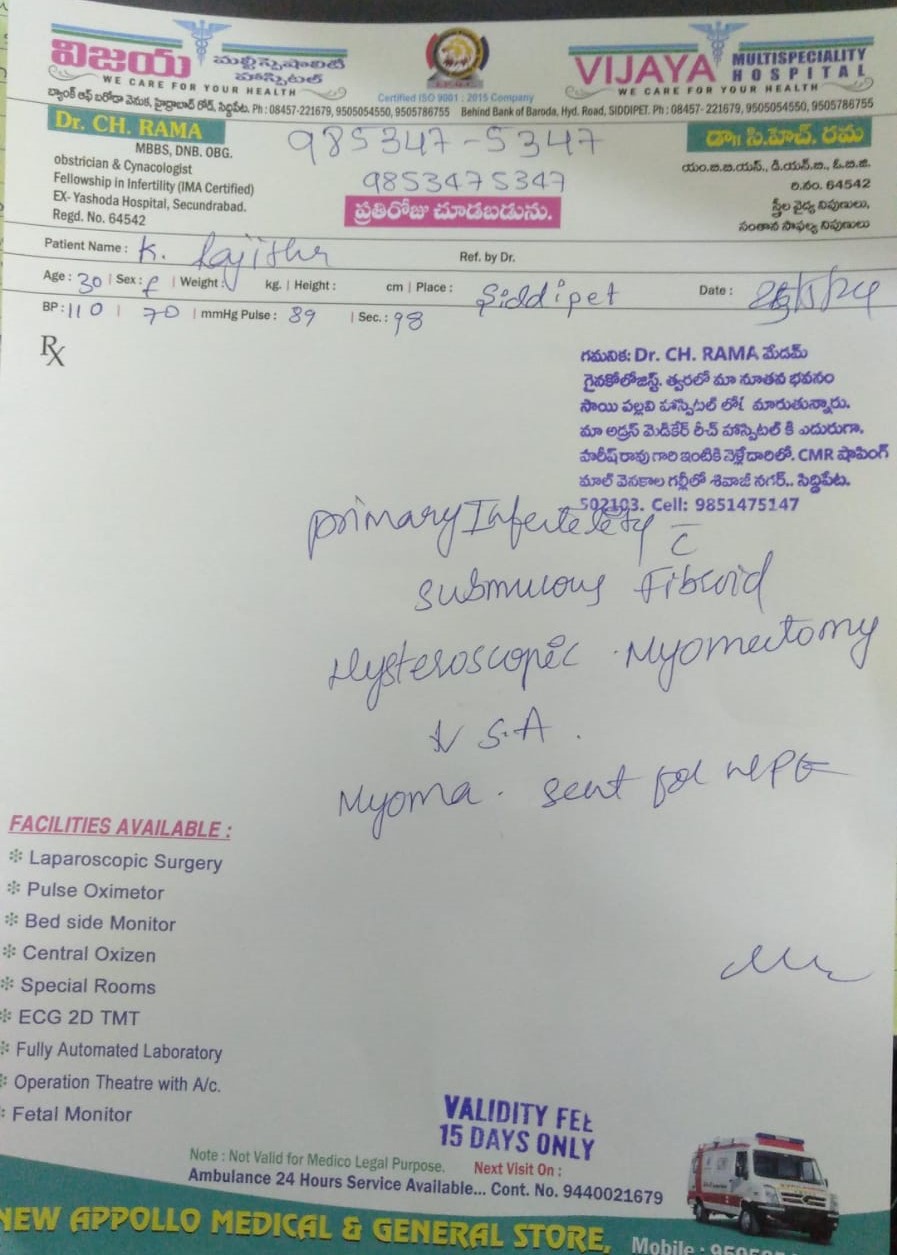 విజయ మల్టీస్పెషాలిటి హాస్పిటల్
WE CARE FOR YOUR HEALTH
Certified ISO 9001 : 2015 Company
VIJAYA MULTISPECIALITY HOSPITAL
WE CARE FOR YOUR HEALTH
బ్యాంక్ ఆఫ్ బరోడా వెనుక, హైద్రాబాద్ రోడ్, సిద్దిపేట. Ph : 08457-221679, 9505054550, 9505786755
Behind Bank of Baroda, Hyd. Road, SIDDIPET. Ph : 08457- 221679, 9505054550, 9505786755
Dr. CH. RAMA
MBBS, DNB. OBG.
obstrician & Cynacologist
Fellowship in Infertility (IMA Certified)
EX- Yashoda Hospital, Secundrabad.
Regd. No. 64542
985347-5347
9853475347
ప్రతిరోజు చూడబడును.
డా॥ సి.హెచ్. రమ
యం.బి.బి.యస్., డి.యన్.బి., ఓ.బి.జి.
రి.నం. 64542
స్త్రీల వైద్య నిపుణులు,
సంతాన సాఫల్య నిపుణులు
Patient Name : K. Rajitha Ref. by Dr.
Age : 30 | Sex : f | Weight : kg. | Height : cm | Place : Siddipet Date : /5/24
BP : 110 | 70 | mmHg Pulse : 89 | Sec. : 98
Rx
గమనిక: Dr. CH. RAMA మేడమ్
గైనకోలోజిస్ట్. త్వరలో మా నూతన భవనం
సాయి పల్లవి హాస్పిటల్ లోకి మారుతున్నారు.
మా అడ్రస్ మెడికేర్ రీచ్ హాస్పిటల్ కి ఎదురుగా.
హరీష్ రావు గారి ఇంటికి వెళ్లేదారిలో. CMR షాపింగ్
మాల్ వెనకాల గల్లీలో శివాజీ నగర్.. సిద్దిపేట.
502103. Cell: 9851475147
primary Infertelety c̄
submucous Fibroid
Hysteroscopic Myomectomy
S.A.
Myoma. sent for HPE
FACILITIES AVAILABLE :
❇ Laparoscopic Surgery
❇ Pulse Oximetor
❇ Bed side Monitor
❇ Central Oxizen
❇ Special Rooms
❇ ECG 2D TMT
❇ Fully Automated Laboratory
❇ Operation Theatre with A/c.
❇ Fetal Monitor
VALIDITY FEE
15 DAYS ONLY
Note : Not Valid for Medico Legal Purpose. Next Visit On :
Ambulance 24 Hours Service Available... Cont. No. 9440021679
NEW APPOLLO MEDICAL & GENERAL STORE, Mobile :